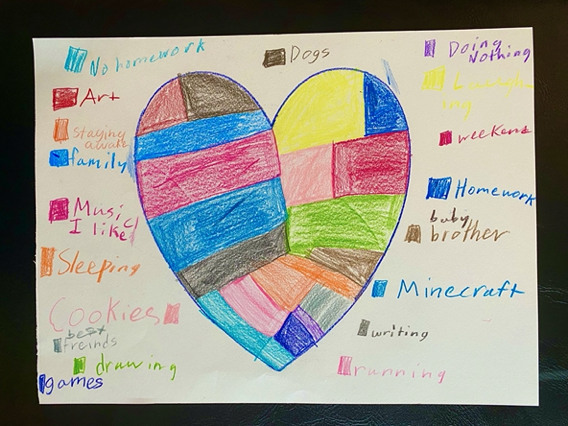 No homework
Dogs
Doing
Nothing
Art
Laughing
ing
staying
awake
family
weekend
Music
I like
Homework
baby
brother
Sleeping
Minecraft
Cookies
best
freinds
writing
drawing
running
games